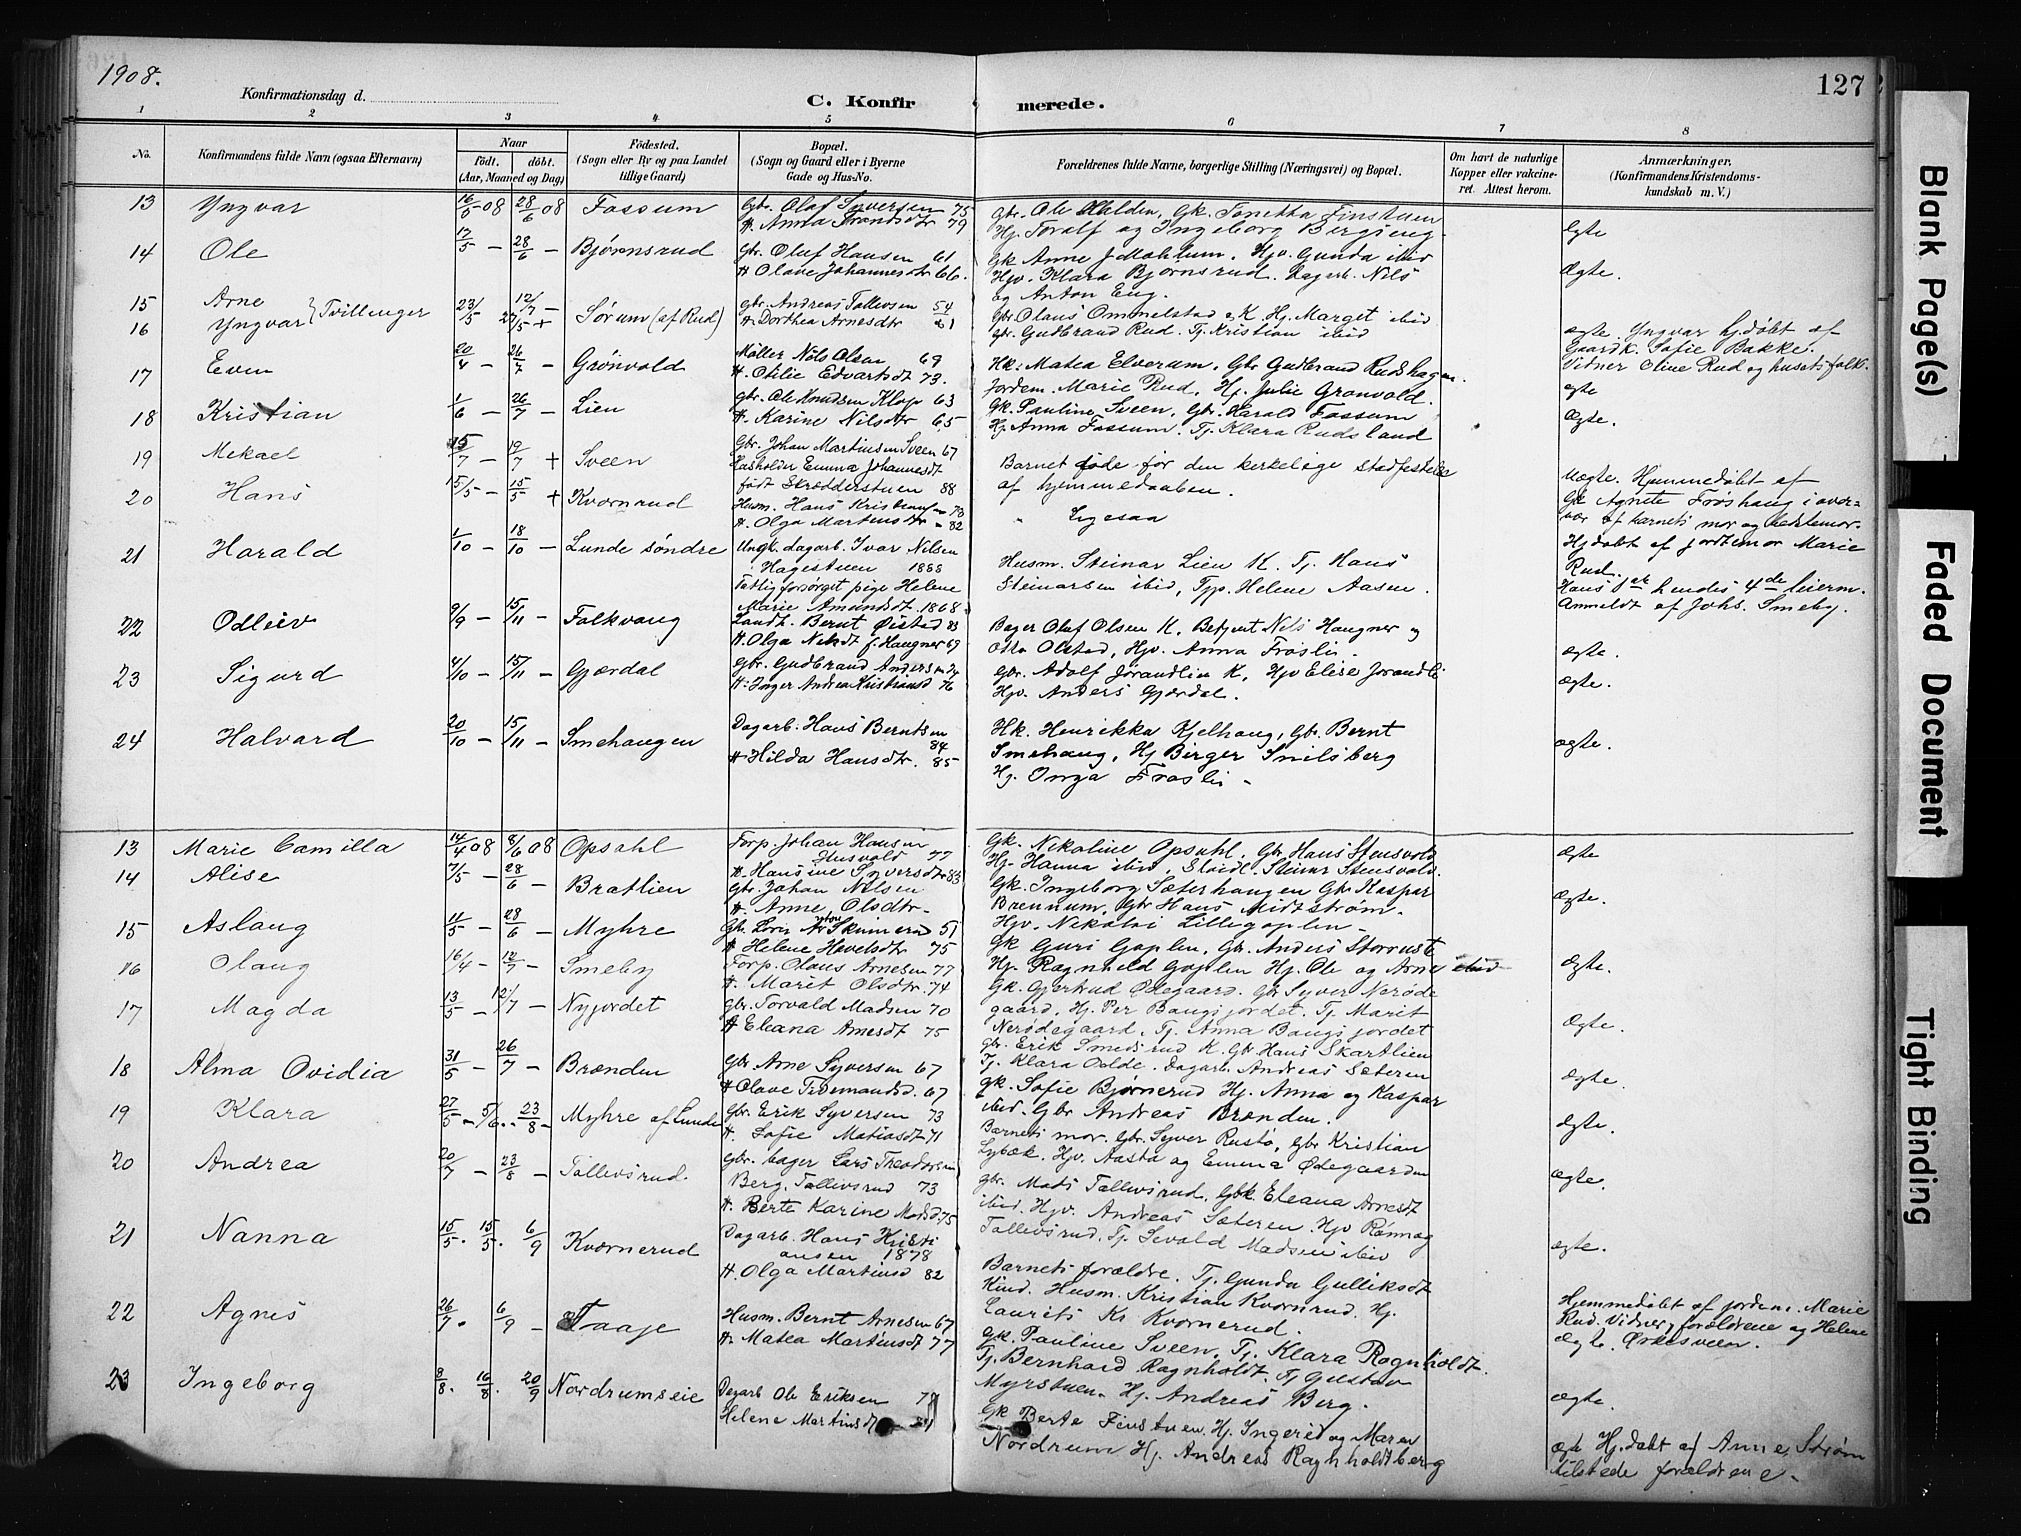 1908.
127
Konfirmationsdag d.
C. Konfirmerede.
1 2 3 4 5 6 7 8
No.
Konfirmandens fulde Navn (ogsaa Efternavn)
Naar
födt. döbt.
(Aar, Maaned og Dag)
Födested.
(Sogn eller By og paa Landet
tillige Gaard)
Bopæl.
(Sogn og Gaard eller i Byerne
Gade og Hus-No.
Forældrenes fulde Navne, borgerlige Stilling (Næringsvei) og Bopæl.
Om havt de naturlige
Kopper eller vakcine-
ret. Attest herom.
Anmærkninger.
(Konfirmandens Kristendoms-
kundskab m. V.)
13 Yngvar 16/5 08 28/6 08 Fossum Gbr. Olaf Syversen 75
H. Anna 79
Gbr. Ole Gk. Tonetta Finstuen
Hj. Toralf og Ingeborg
Egte
14 Ole 17/5 - 28/6 - Bjørnsrud Gbr. Oluf Hansen 61
H Olave Johannesdtr 66.
Gk Anne J Mæhlum. Hjv. Gunda ibid
Hjv. Klara Bjørnsrud. Dagarb. Nils
og Anton Eng.
Ægte.
15 Arne
16 Yngvar } Tvillinger 23/5 12/7 - Sørum (af Rud) Gbr. Andreas Tollevsen 54
H. Dorthea Arnesdtr 61
Gbr. Olaus Ommelstad K Hj. Marget ibid
Gbr. Gudbrand Rud. Tj. Kristian ibid
ægte Yngvar hj.døbt af
Gaardk. Sofie Bakke.
Vidner Oline Rud og husets folk.
17 Even 20/4 - 26/7 - Grønvold Møller Nils Olsen 69
H. Otilie Edvartsdt 73.
Hk: Matea Elverum, Gbr Gudbrand Rudshagen.
Jordem. Marie Rud, Hj. Julie Grønvold.
egte
18 Kristian 1/6 - 26/7 - Lien Gbr. Ole Knudsen Klop 63
H. Karine Nilsdtr 65
Gk. Pauline Sveen, Gbr. Harald Fossum
Hj. Anna Fossum. Tj. Klara Rudsland
Ægte.
19 Mekael 15/7 - 19/7 + Sveen Gbr. Johan Martinsen Sveen 67
Husholder Emma Johannesdt
født Skrædderstuen 88
Barnet døde før den kirkelige stadfestelse
af hjemmedaaben.
Uægte. Hjemmedøbt af
Gk Agnete Frøshaug i over-
vær af barnets mor og bedstemor.
20 Hans 15/5 - 15/5 + Kvornrud Husm. Hans Kristiansen 78
H. Olga Martinsdtr 82
" Ligesaa
Hjdøbt af jordemor Marie
Rud.
21 Harald 1/10 - 18/10 - Lunde søndre Ungk. dagarb. Ivar Nilsen
Hagestuen 1888
Fattigforsørget pige Helene
Marie Amundsdt. 1868.
Husm. Steinar Lien K. Tj. Hans
Steinarsen ibid, Tjp. Helene Aasen.
Hans 1ste hendes 4de leierm.
Anmeldt af Johs. Smeby.
22 Odleiv 9/9 - 15/11 - Falkvang Landh. Bernt Øistad 83
H. Olga Nilsdt f. Haugner 69
Bager Oluf Olsen K. Betjent Nils Haugner og
Otto Olstad, Hjv. Anna Frøslie.
ægte.
23 Sigurd 4/10 - 15/11 - Gjærdal Gbr. Gudbrand Andersen
H. Inger Andrea Kristiansd 76
Gbr. Adolf Jørandlien K, Hjv Elise Jørandli
Hjv. Anders Gjærdal.
ægte.
24 Halvard 20/10 - 15/11 - Smehaugen Dagarb. Hans Berntsen
84
H Hilda Hansdtr. 85
Hk. Henrikka Kjelhaug, Gbr. Bernt
Smehaug, Hj Birger Snilsberg
Hj. Onga Frøsli -
ægte.
13 Marie Camilla 14/4 08 8/6 08 Opsahl Forp. Johan Hansen
77
H. Hansine Syversdtr 83
Gk. Nikoline Opsahl, Gbr. Hans Stensvold
Hj. Hanna ibid, Steinar Stensvold.
ægte
14 Alise 7/5 - 28/6 - Bratlien Gbr. Johan Nilsen
H. Anne Olsdtr.
Gk. Ingeborg Sæterhaugen Gbr Kaspar
Brennum, Gbr Hans Midtstrøm.
Hjv. Nikolai Lillegoplen
ægte.
15 Aslaug 4/5 - 28/6 - Myhre Gbr. 51
H Helene Hovelsdtr 75
Gk Guri Goplen, Gbr. Anders Storruste
Hj. Ragnhild Goplen Hj. Ole og Arne ibid
16 Olaug 16/4 - 12/7 - Smeby Forp. Olaus Arnesen 77
H. Marit Olsdtr. 74
Gk. Gjertrud Ødegaard. Gbr Syver Nerøde
gaard, Hj. Per Bangsjordet. Tj. Marit
Nerødegaard, Tj. Anna Bangsjordet
Ægte.
17 Magda 13/5 - 12/7 - Nyjordet Gbr. Torvald Madsen 70
H Eleana Arnesdt 75
Gbr. Erik Smedsrud K. Gbr Hans Skartlien
Tj. Klara Odde. Dagarb. Andreas Sæteren
Ægte.
18 Alma Ovidia 31/5 - 26/7 - Brænden Gbr. Arne Syversen 67
H Olave Tidemandsd. 67
Gk. Sofie Bjørnerud Hj. Anna og Kaspar
ibid. Gbr Andreas Brænden.
ægte.
19 Klara 27/5 - 5/6 - 23/8 - Myhre af Lunde Gbr. Erik Syversen 73
H. Sofie Matiasdt 71
Barnets mor. Gbr. Syver Rustø, Gbr Kristian
Lybæk. Hjv. Aasta og Emma Ødegaarden
ægte.
20 Andrea 20/7 - 23/8 - Tollevsrud. Gbr. bager Lars Theodorsen
Berg, Tollevsrud 73
H. Berte Karine Madsd. 75
Gbr. Mads Tollevsrud, Gbk. Eleana Arnesdt
ibid. Hjv. Andreas Sæteren. Hjv Rønnog
Tollevsrud. Tj. Sevald Madsen ibid
ægte.
21 Nanna 15/5. 15/5. 6/9 Kvornerud Dagarb. Hans Kristi
ansen 1878
H. Olga Martinsd 82
Barnets forældre. Tj. Gunda Gulliksdt
Kind. Husm. Kristian Kvornrud. Hj.
Laurits Kr Kvornerud.
ægte.
Hjemmedøbt af jordem. Marie
Rud. Vidner forældrene og Helene
Ørkesveen.
22 Agnes 26/7. 6/9 - Taaje Husm. Bernt Arnesen 67
H. Matea Martinsdt 77
Gk. Pauline Sveen, Tj. Klara Rognholdt.
Tj. Bernhard Ragnholdt. Tj Gustav
Myrstuen. Hj. Andreas Berg.
ægte.
23 Ingeborg 8/8. 16/8. 20/9 Nordrumseie Dagarb Ole Eriksen
Helene Martinsdt
Gk Berte Finstuen. Hj. Ingerid og Maren
Nordrum Hj. Andreas Ragnholdtberg
ægte Hj.døbt af Anne Strøm
tilstede forældrene.
Blank Page(s)
Faded Document
Tight Binding